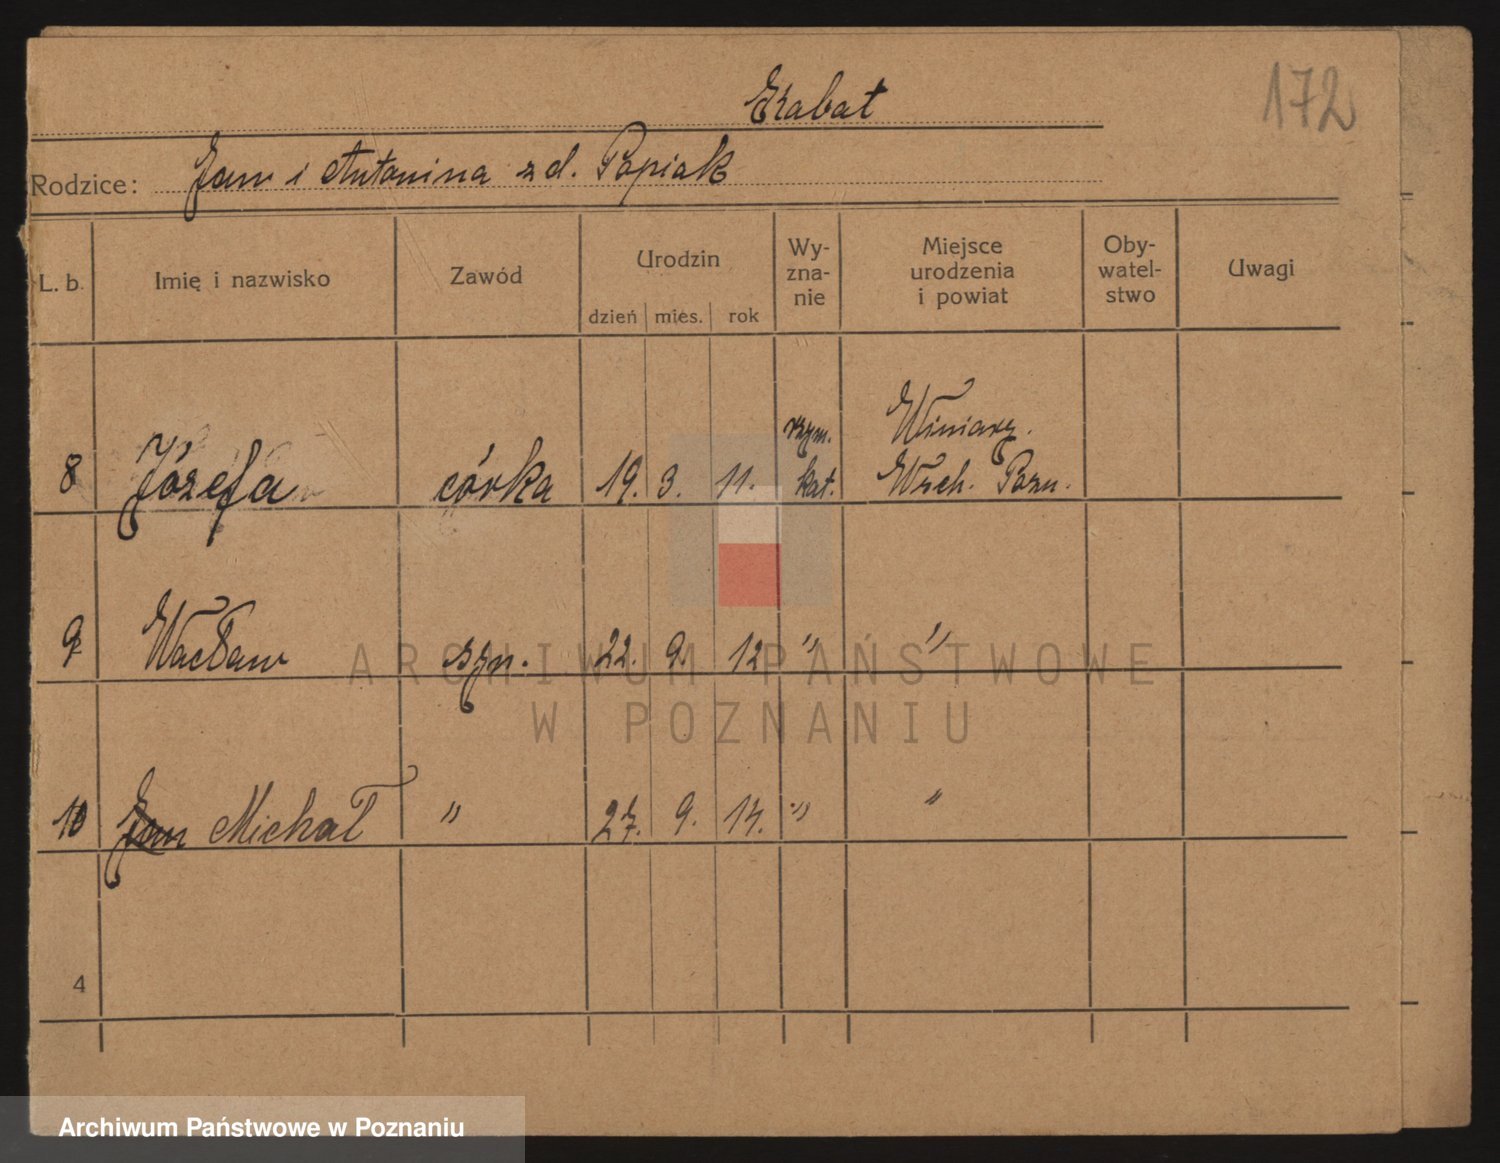 Skabat
172
Rodzice: Jan i Antonina z d. Papiak
L. b. Imię i nazwisko Zawód Urodzin dzień mies. rok Wy-zna-nie Miejsce urodzenia i powiat Oby-watel-stwo Uwagi
rzym. Winiary.
8 Józefa córka 19. 3. 11. kat. Wsch. Pozn.
9 Wacław syn. 22. 9. 12 " "
10 Jan Michał " 27. 9. 14. " "
4
ARCHIWUM PAŃSTWOWE
W POZNANIU
Archiwum Państwowe w Poznaniu